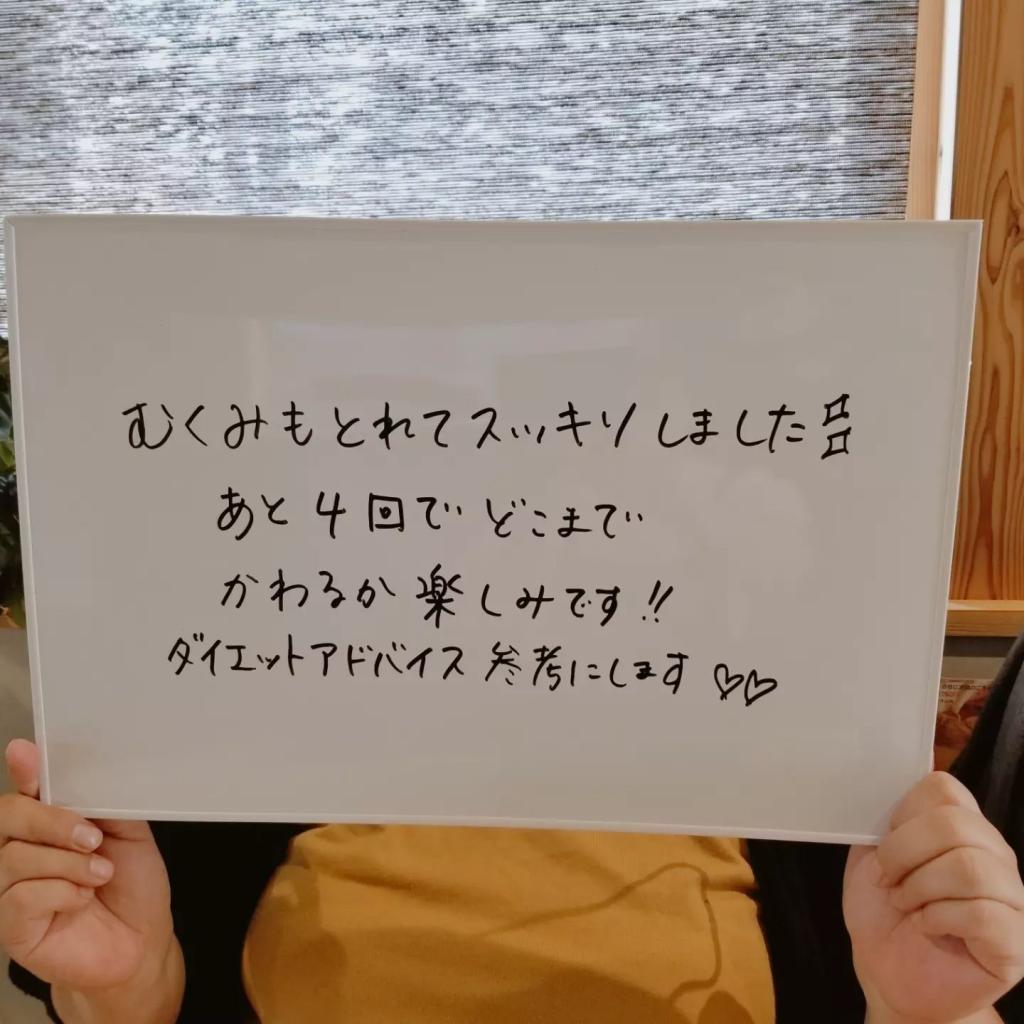 むくみもとれてスッキリしました
あと4回でどこまで
かわるか楽しみです!!
ダイエットアドバイス参考にします♡♡